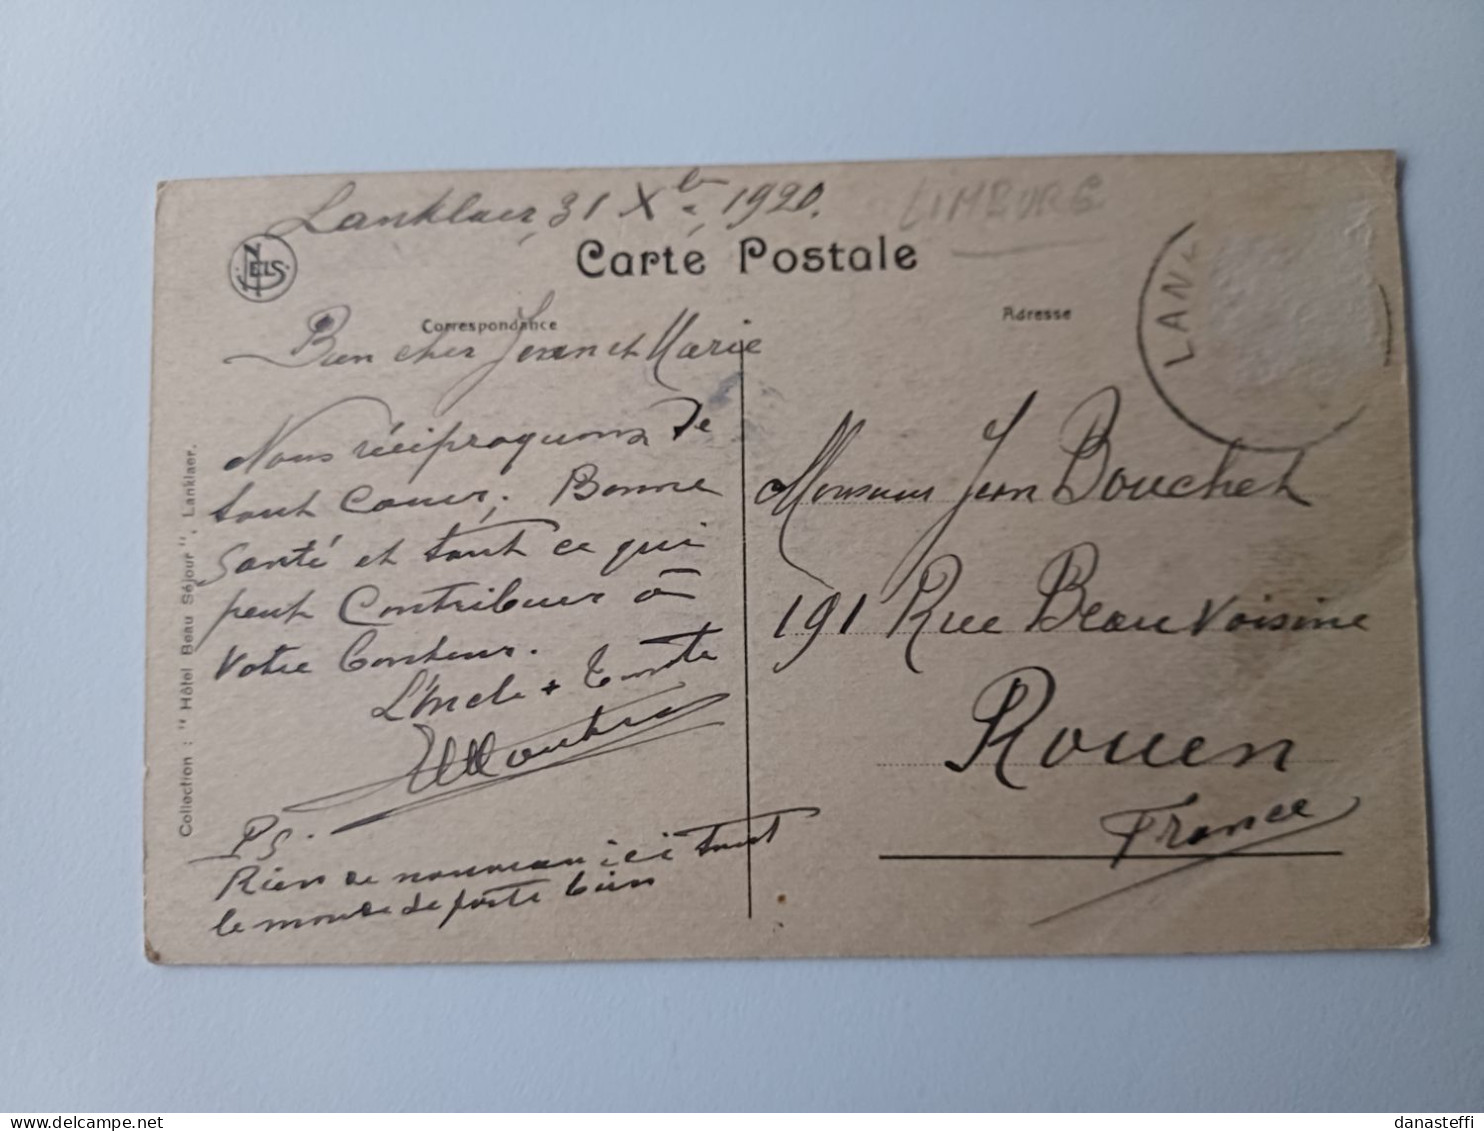 Lanklaer, 31 Xbre 1920.
LIMBURG
NELS
Carte Postale
Correspondance
Adresse
LAN
Bien cher Jean et Marie
Nous réciproquons de
tout cœur, Bonne
Santé et tout ce qui
peut Contribuer à
Votre Bonheur.
L'Oncle + Tante
Ps.
Rien de nouveau ici tout
le monde se porte bien
Monsieur Jean Bouchet
191 Rue Beau Voisine
Rouen
France
Collection : "Hôtel Beau Séjour", Lanklaer.
delcampe.net
danasteffi